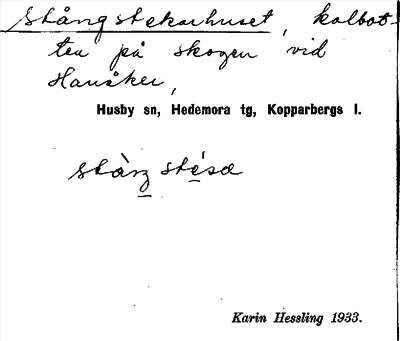 Stångstekarhuset, kolbot-
ten på skogen vid
Hanåker,
Husby sn, Hedemora tg, Kopparbergs l.
Karin Hessling 1933.